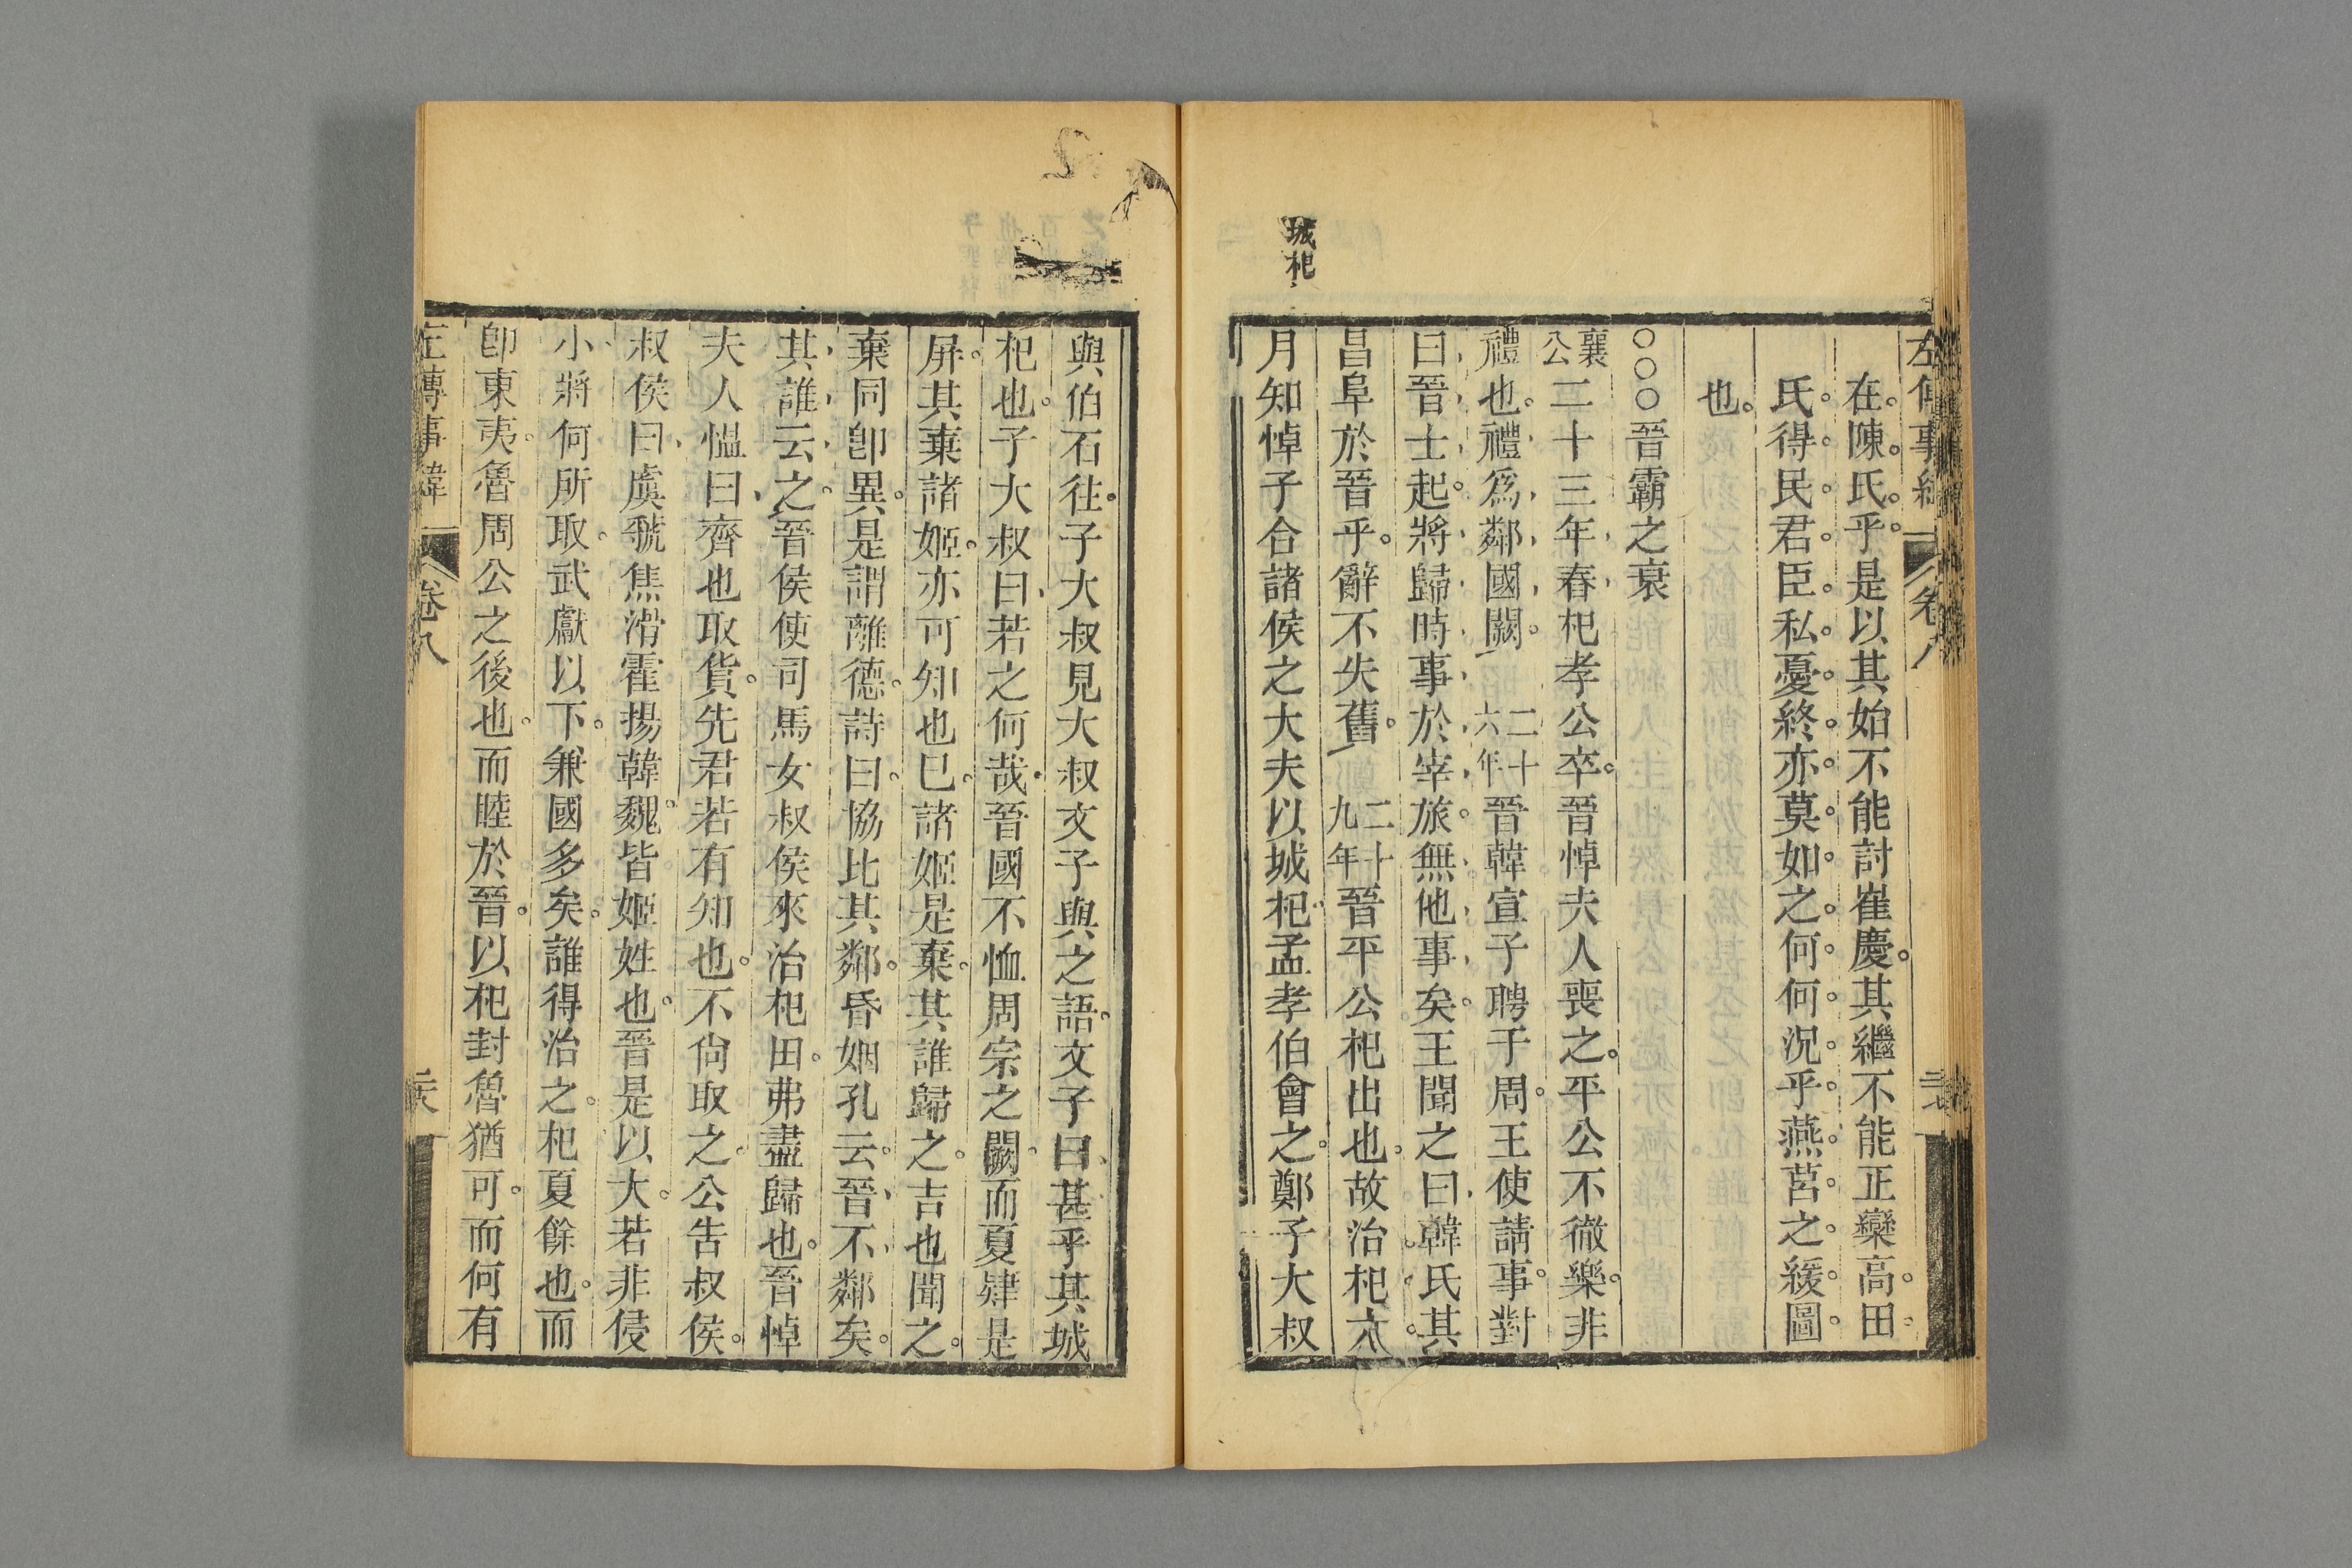 左傳事緯 卷八
在陳氏乎是以其始不能討崔慶其繼不能正欒高田
氏得民君臣私憂終亦莫如之何何況乎燕莒之緩圖
也
○○○晉霸之衰
襄公二十三年春杞孝公卒晉悼夫人喪之平公不徹樂非
禮也禮爲鄰國闕二十六年晉韓宣子聘于周王使請事對
曰晉士起將歸時事於宰旅無他事矣王聞之曰韓氏其
昌阜於晉乎辭不失舊二十九年晉平公杞出也故治杞六
月知悼子合諸侯之大夫以城杞孟孝伯會之鄭子大叔
城杞
與伯石往子大叔見大叔文子與之語文子曰甚乎其城
杞也子大叔曰若之何哉晉國不恤周宗之闕而夏肄是
屏其棄諸姬亦可知也已諸姬是棄其誰歸之吉也聞之
棄同卽異是謂離德詩曰協比其鄰昏姻孔云晉不鄰矣
其誰云之晉侯使司馬女叔侯來治杞田弗盡歸也晉悼
夫人慍曰齊也取貨先君若有知也不尙取之公告叔侯
叔侯曰虞虢焦滑霍揚韓魏皆姬姓也晉是以大若非侵
小將何所取武獻以下兼國多矣誰得治之杞夏餘也而
卽東夷魯周公之後也而睦於晉以杞封魯猶可而何有
左傳事緯 卷八